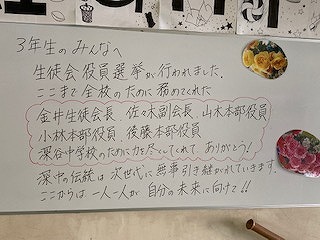 3年生のみんなへ
生徒会役員選挙が行われました。
ここまで全校のために務めてくれた
金井生徒会長、佐々木副会長、山木本部役員
小林本部役員、後藤本部役員
深谷中学校のために力を尽くしてくれて、ありがとう!
深中の伝統は次世代に無事引き継がれていきます。
ここからは一人一人が自分の未来に向けて!!